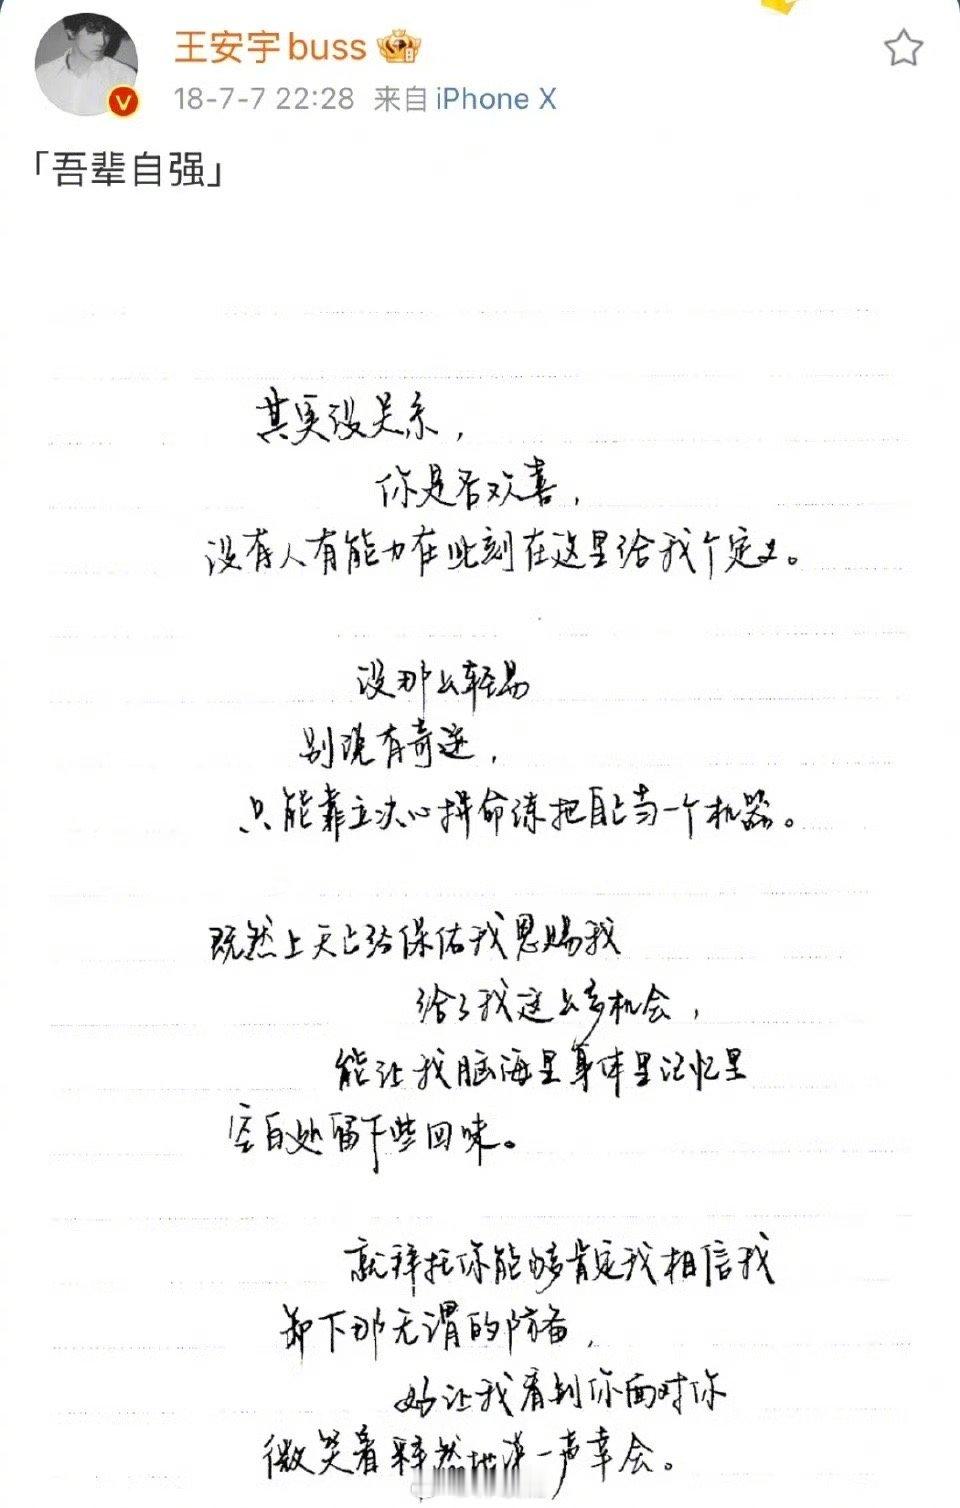 王安宇buss
18-7-7 22:28 来自 iPhone X
「吾辈自强」
其实没关系，
你是否欢喜，
没有人有能力在此刻在这里给我个定义。
没那么轻易
别说有奇迹，
只能靠立决心拼命练把自己当一个机器。
既然上天已经保佑我恩赐我
给了我这么多机会，
能让我脑海里身体里记忆里
空白处留下些回味。
就拜托你能够肯定我相信我
卸下那无谓的防备，
好让我看到你面对你
微笑着释然地说一声幸会。